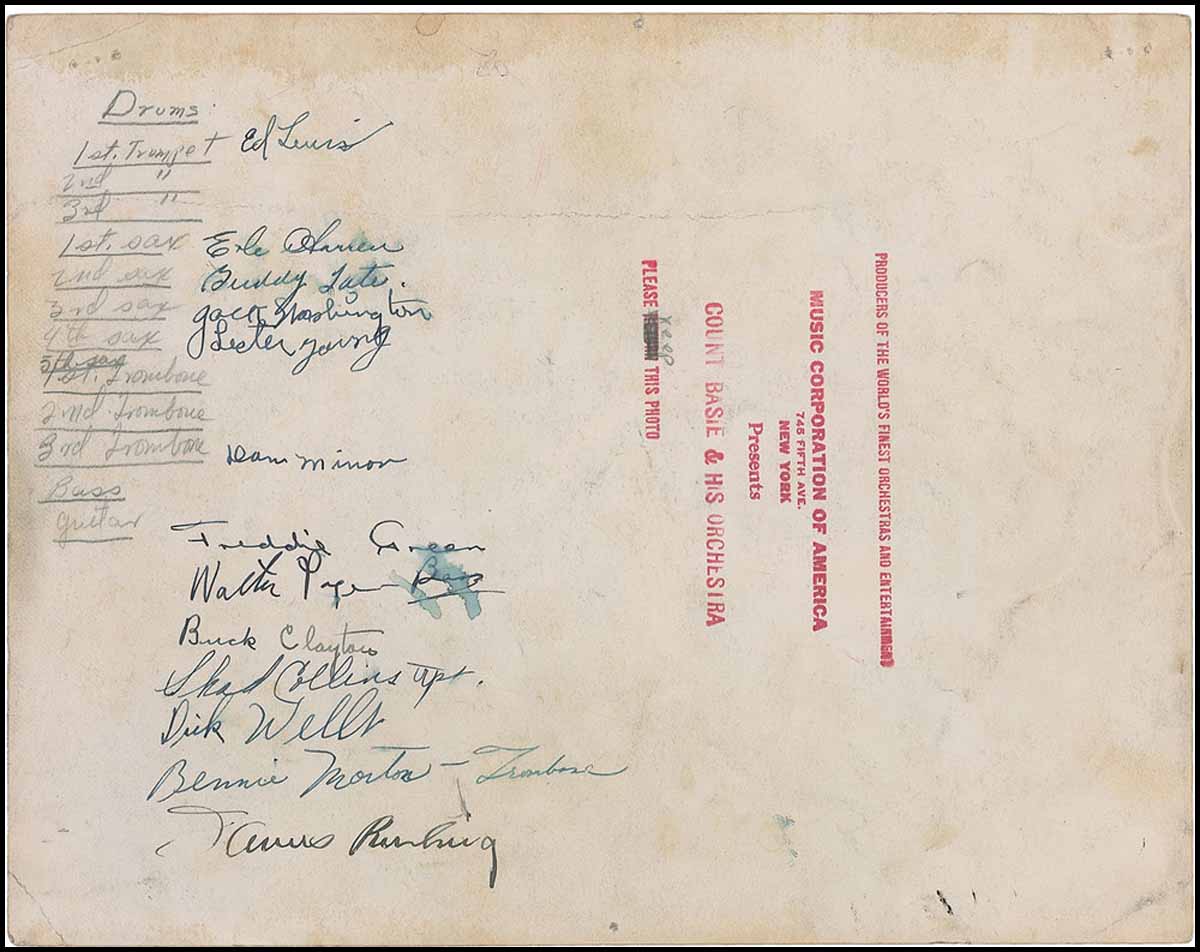 Drums:
1st. Trumpet Ed Lewis
2nd "
3rd "
1st. sax Erle Warren
2nd sax Buddy Tate.
3rd sax Jack Washington
4th sax Lester Young
5th sax
1st. Trombone
2nd Trombone
3rd Trombone Dan Minor
Bass
guitar
Freddie Green
Walter Page Bass
Buck Clayton
Shad Collins Tpt.
Dick Wells
Bennie Morton - Trombone
James Rushing
PRODUCERS OF THE WORLD'S FINEST ORCHESTRAS AND ENTERTAINMENT
MUSIC CORPORATION OF AMERICA
745 FIFTH AVE.
NEW YORK
Presents
COUNT BASIE & HIS ORCHESTRA
PLEASE keep THIS PHOTO